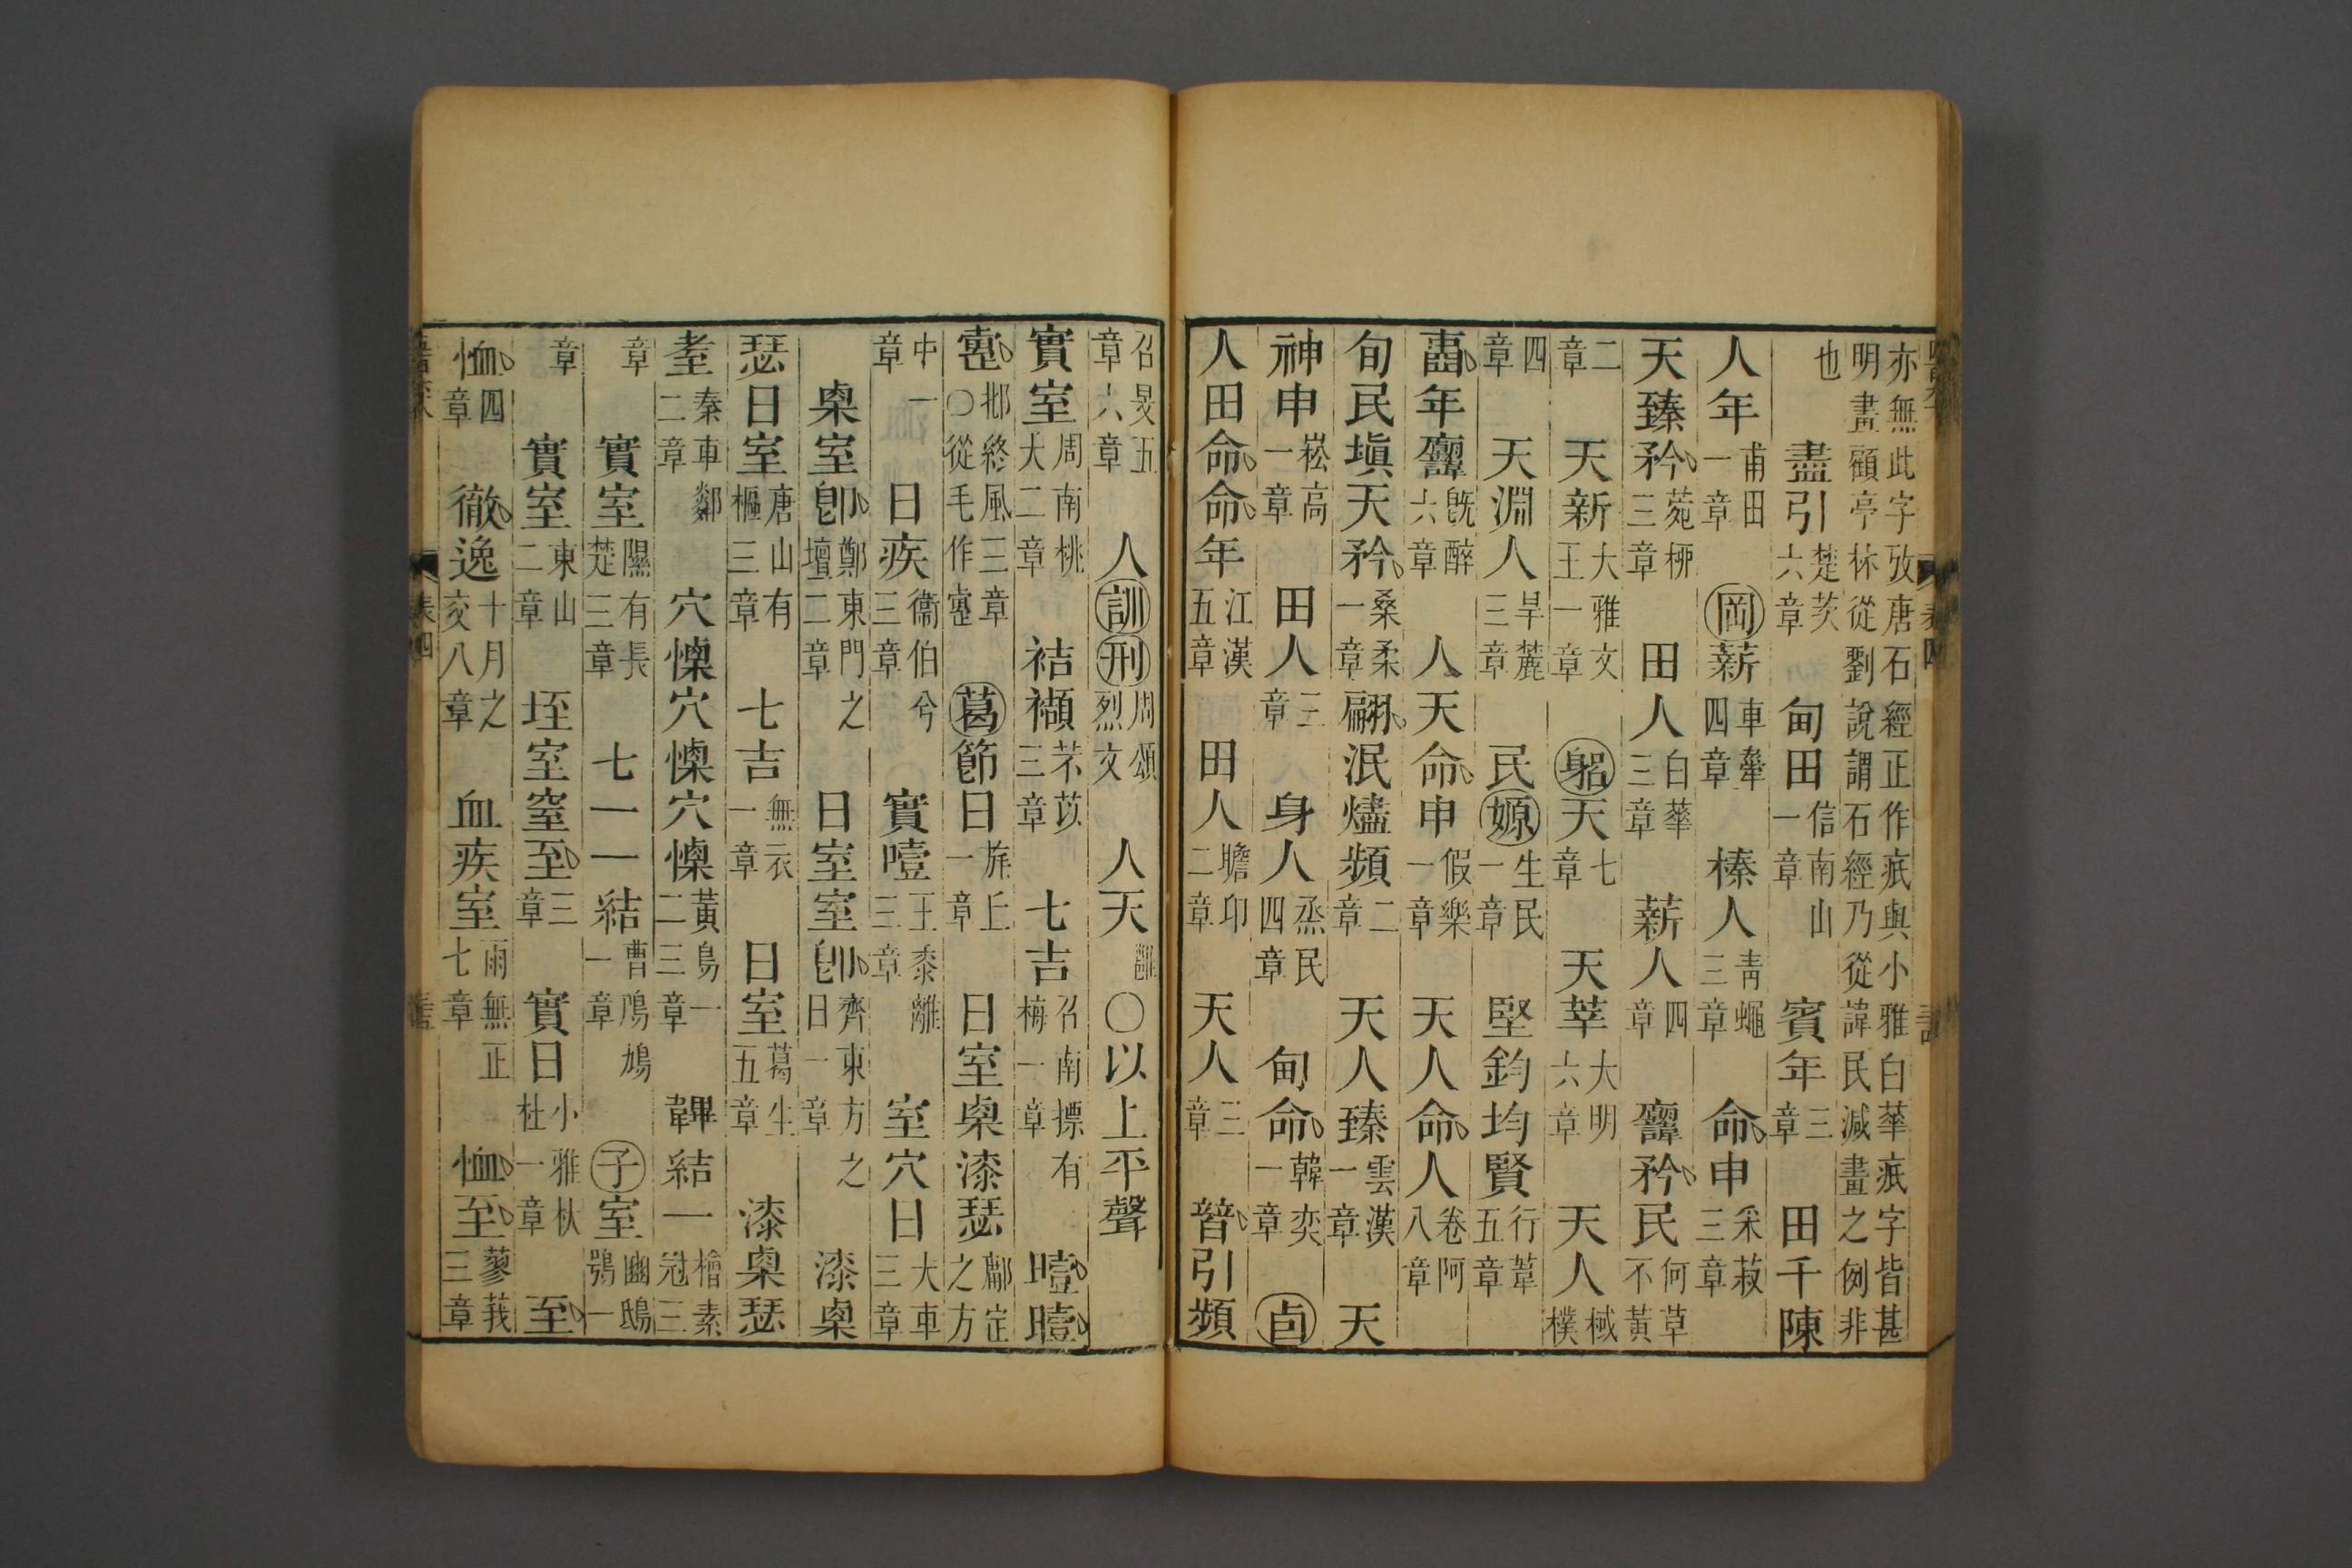 亦無此字攷唐石經正作疧與小雅白華疧字皆甚
明畫顧亭林從劉說謂石經乃從諱民減畫之例非
也
盡引楚茨六章 甸田信南山一章 賓年三章 田千陳
人年甫田一章 岡薪車舝四章 榛人青蠅三章 命申采菽三章
天臻矜菀柳三章 田人白華三章 薪人四章 矜民何草不黃
二章 天新大雅文王一章 躬天七章 天莘大明六章 天人棫樸
四章 天淵人旱麓三章 民嫄生民一章 堅鈞均賢行葦五章
壼年既醉六章 人天命申假樂一章 天人命人卷阿八章
旬民塡天矜桑柔一章 翩泯燼頻二章 天人臻雲漢一章 天
神申崧高一章 田人三章 身人烝民四章 甸命韓奕一章
人田命命年江漢五章 田人瞻卬二章 天人三章 替引頻
召旻五章六章 人訓刑周頌烈文 人天雝 〇以上平聲
實室周南桃夭二章 袺襭芣苢三章 七吉召南摽有梅一章 曀曀
疐邶終風三章〇從毛作疌 葛節日旄丘一章 日室㮚漆瑟鄘定之方
中一章 日疾衞伯兮三章 實噎王黍離三章 室穴日大車三章
㮚室卽鄭東門之墠二章 日室室卽齊東方之日一章 漆㮚
瑟日室唐山有樞三章 七吉無衣一章 日室葛生五章 漆㮚瑟
耋秦車鄰二章章 穴慄穴慄穴慄黃鳥一二三章 韠結一檜素冠三
章 實室隰有萇楚三章 七一一結曹鳲鳩一章 子室豳鴟鴞一
章 實室東山二章 垤室窒至三章 實日小雅杕杜一章 至
恤四章 徹逸十月之交八章 血疾室雨無正七章 恤至蓼莪三章